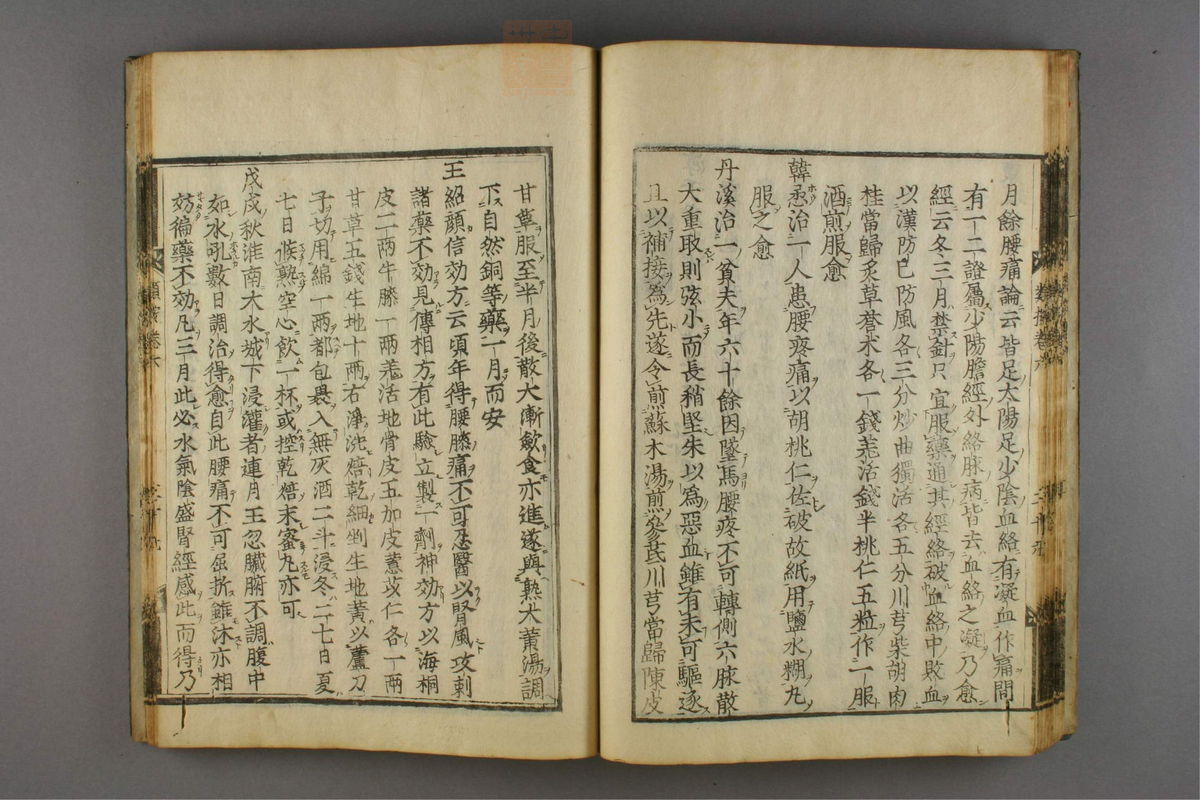 月餘腰痛論云皆足太陽足少陰血絡有凝血作痛間
有一二證屬少陽膽經外絡脉病皆去血絡之凝乃愈
經云冬三月禁針只宜服藥通其經絡破血絡中敗血
以漢防巳防風各三分炒曲獨活各五分川芎柴胡肉
桂當歸炙草蒼术各一錢羌活錢半桃仁五粒作一服
酒煎服愈
韓丞治一人患腰疼痛以胡桃仁佐破故紙用鹽水糊丸
服之愈
丹溪治一貧夫年六十餘因墜馬腰疼不可轉側六脉散
大重敢則弦小而長稍堅朱以為惡血雖有未可驅逐
且以補接為先遂令煎蘇木湯煎參芪川芎當歸陳皮
甘草服至半月後散大漸斂食亦進遂與熟大黃湯調
下自然銅等藥一月而安
王紹顏信効方云頃年得腰膝痛不可忍醫以腎風攻刺
諸藥不効見傳相方有此驗立製一劑神効方以海桐
皮二兩牛膝一兩羌活地骨皮五加皮薏苡仁各一兩
甘草五錢生地十兩右淨洗焙乾細剉生地黃以蘆刀
子切用綿一兩都包裹入無灰酒二斗浸冬二七日夏
七日候熟空心飲一杯或控乾焙末蜜丸亦可
戊戌秋淮南大水城下浸灌者連月王忽臟腑不調腹中
如水吼數日調治得愈自此腰痛不可屈折雖沐亦相
妨徧藥不効凡三月此必水氣陰盛腎經感此而得乃